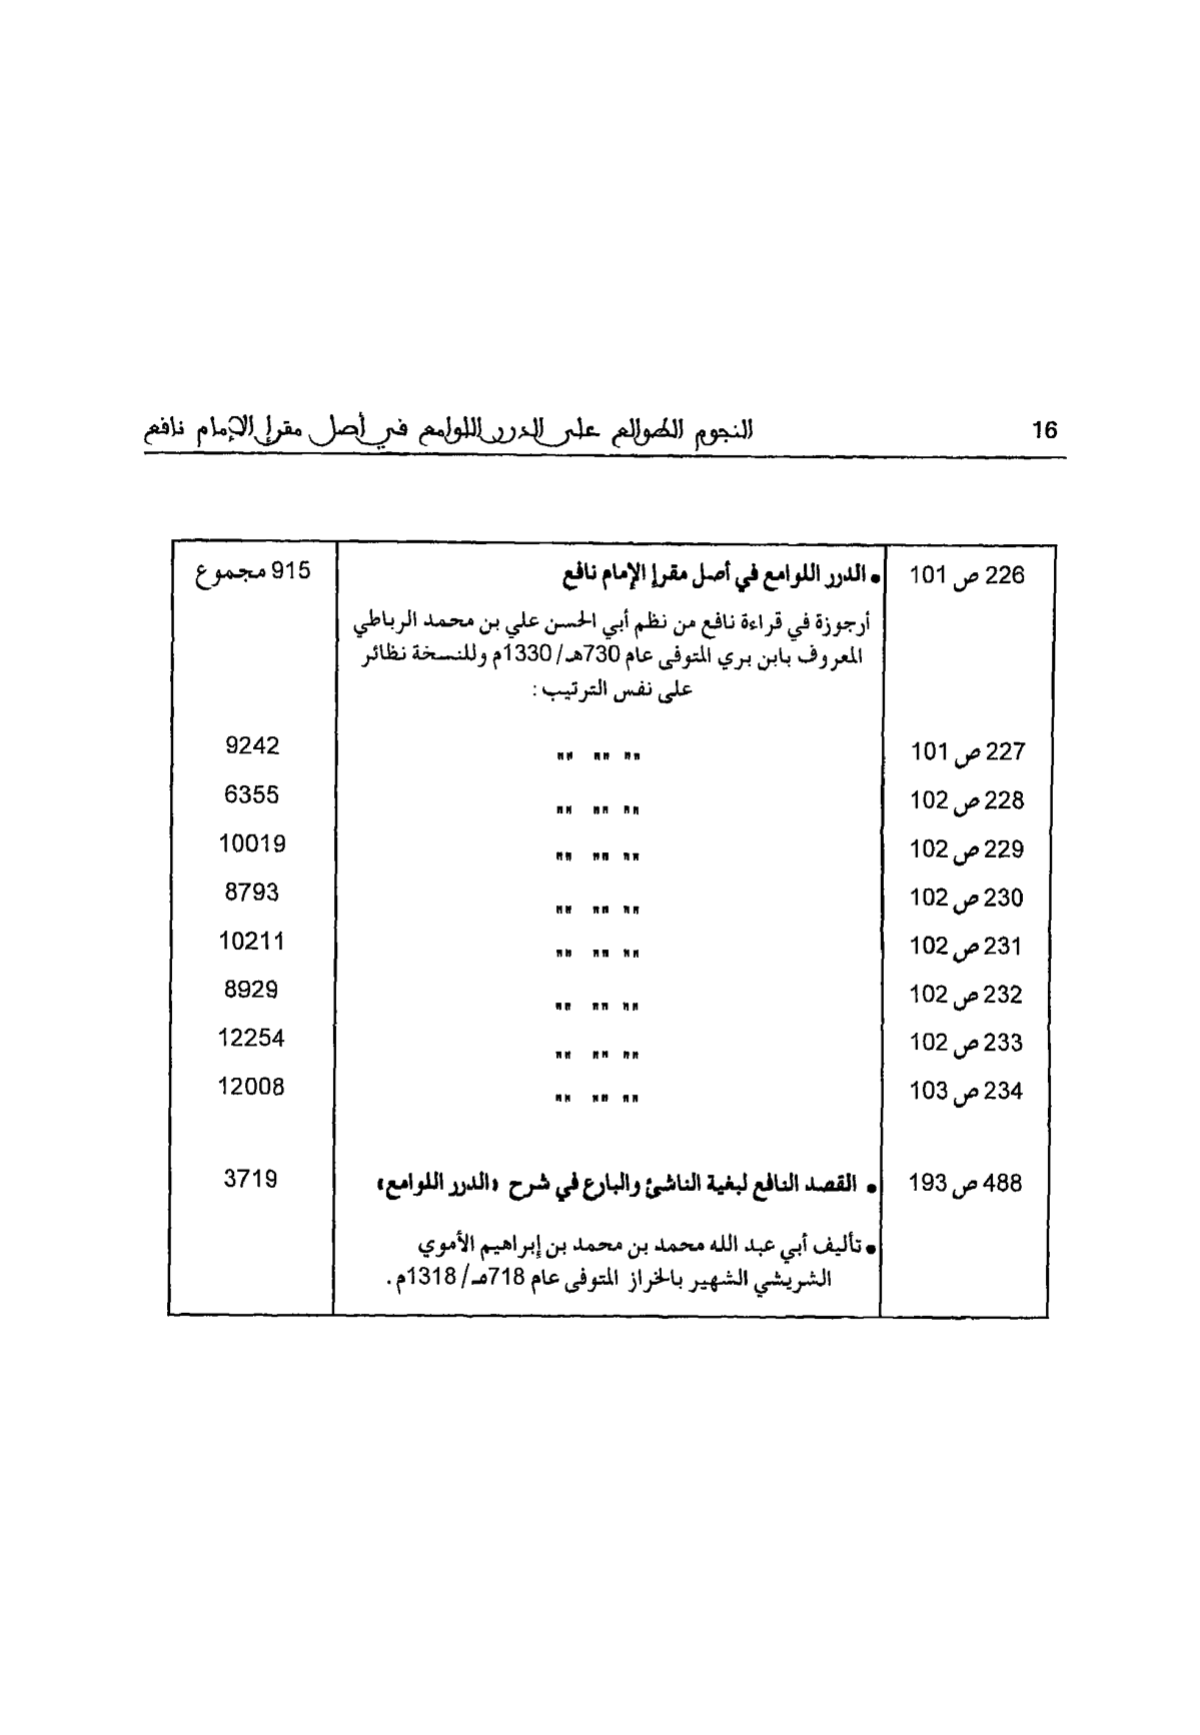 16 النجوم الطوالع على الدرر اللوامع في أصل مقرإ الإمام نافع
226 ص 101 • الدرر اللوامع في أصل مقرإ الإمام نافع 915 مجموع
أرجوزة في قراءة نافع من نظم أبي الحسن علي بن محمد الرباطي
المعروف بابن بري المتوفى عام 730هـ/1330م وللنسخة نظائر
على نفس الترتيب :
227 ص 101 "" "" "" 9242
228 ص 102 "" "" "" 6355
229 ص 102 "" "" "" 10019
230 ص 102 "" "" "" 8793
231 ص 102 "" "" "" 10211
232 ص 102 "" "" "" 8929
233 ص 102 "" "" "" 12254
234 ص 103 "" "" "" 12008
488 ص 193 • القصد النافع لبغية الناشئ والبارع في شرح «الدرر اللوامع» 3719
• تأليف أبي عبد الله محمد بن محمد بن إبراهيم الأموي
الشريشي الشهير بالخراز المتوفى عام 718هـ/1318م.